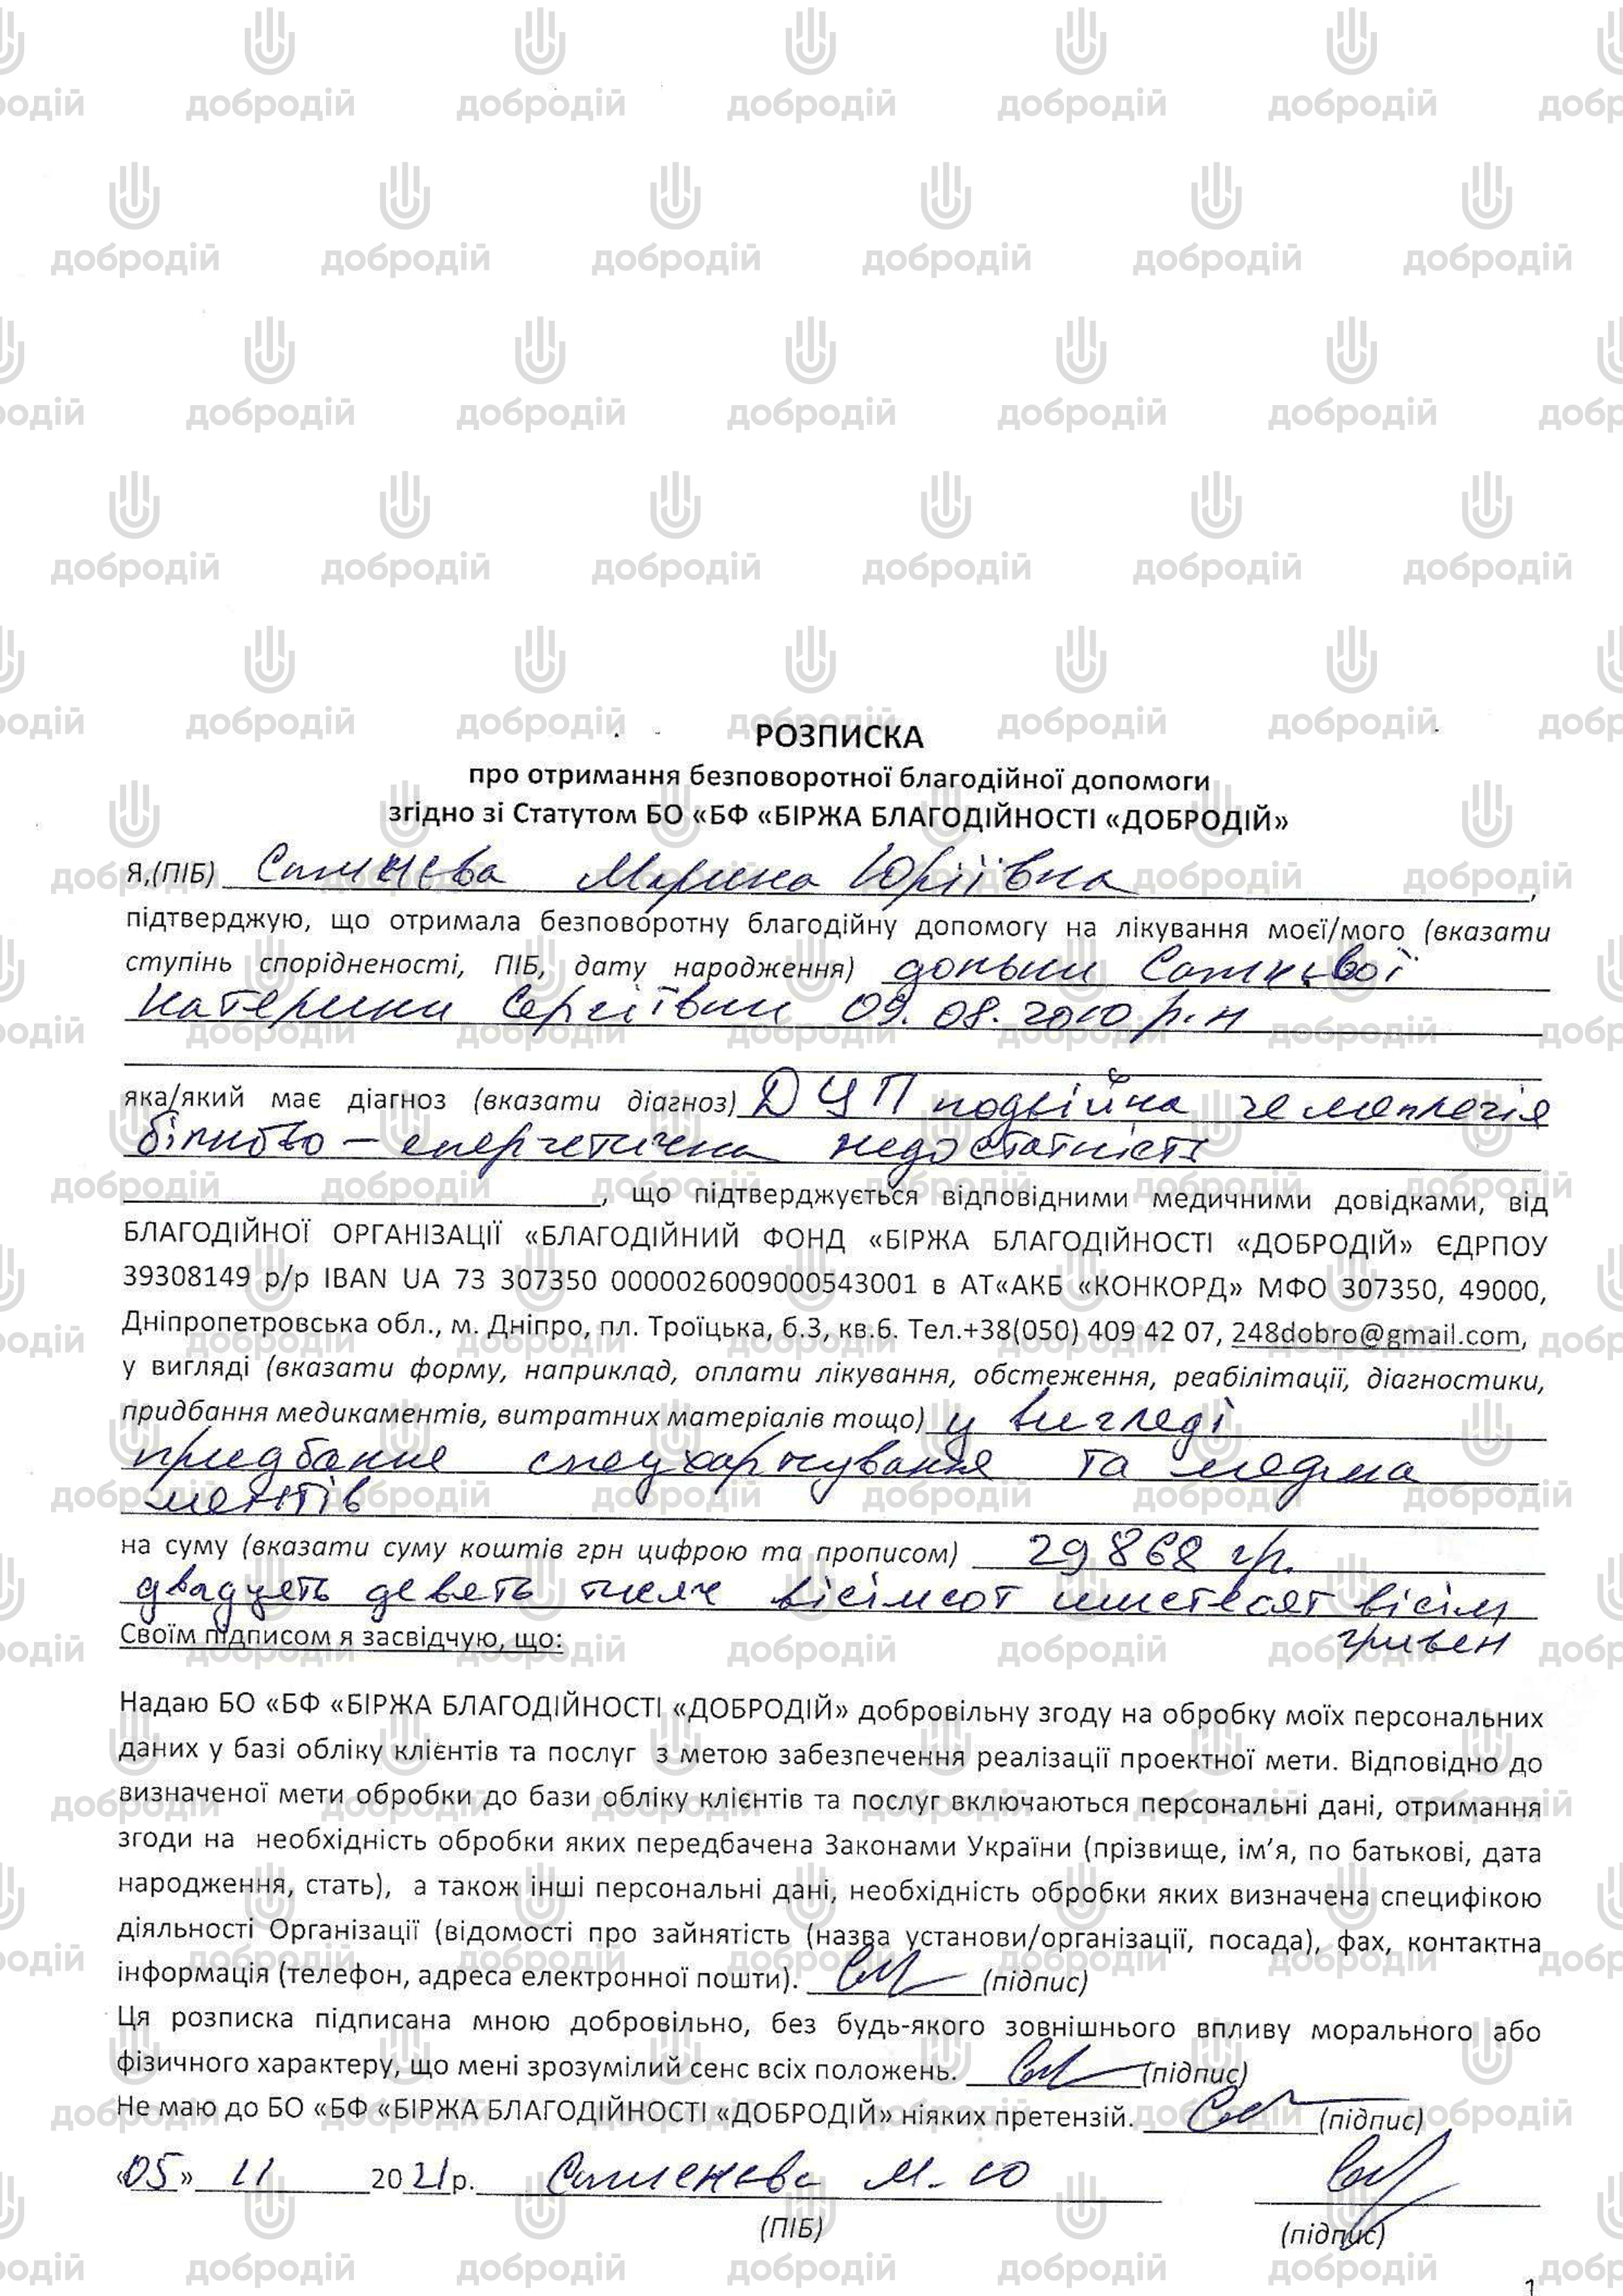 РОЗПИСКА
про отримання безповоротної благодійної допомоги
згідно зі Статутом БО «БФ «БІРЖА БЛАГОДІЙНОСТІ «ДОБРОДІЙ»
Я,(ПІБ) Марина Юріївна,
підтверджую, що отримала безповоротну благодійну допомогу на лікування моєї/мого (вказати
ступінь спорідненості, ПІБ, дату народження) доньки
Катерини Сергіївни 09.08.2010 р.н
яка/який має діагноз (вказати діагноз) ДЦП подвійна
білково – енергетична недостатність
, що підтверджується відповідними медичними довідками, від
БЛАГОДІЙНОЇ ОРГАНІЗАЦІЇ «БЛАГОДІЙНИЙ ФОНД «БІРЖА БЛАГОДІЙНОСТІ «ДОБРОДІЙ» ЄДРПОУ
39308149 р/р IBAN UA 73 307350 0000026009000543001 в АТ«АКБ «КОНКОРД» МФО 307350, 49000,
Дніпропетровська обл., м. Дніпро, пл. Троїцька, б.3, кв.6. Тел.+38(050) 409 42 07, 248dobro@gmail.com,
у вигляді (вказати форму, наприклад, оплати лікування, обстеження, реабілітації, діагностики,
придбання медикаментів, витратних матеріалів тощо) у вигляді
придбання спецхарчування та медика
ментів
на суму (вказати суму коштів грн цифрою та прописом) 29 868 гр.
двадцять девять тисяч вісімсот шистесят вісім
гривен
Своїм підписом я засвідчую, що:
Надаю БО «БФ «БІРЖА БЛАГОДІЙНОСТІ «ДОБРОДІЙ» добровільну згоду на обробку моїх персональних
даних у базі обліку клієнтів та послуг з метою забезпечення реалізації проектної мети. Відповідно до
визначеної мети обробки до бази обліку клієнтів та послуг включаються персональні дані, отримання
згоди на необхідність обробки яких передбачена Законами України (прізвище, ім’я, по батькові, дата
народження, стать), а також інші персональні дані, необхідність обробки яких визначена специфікою
діяльності Організації (відомості про зайнятість (назва установи/організації, посада), фах, контактна
інформація (телефон, адреса електронної пошти). (підпис)
Ця розписка підписана мною добровільно, без будь-якого зовнішнього впливу морального або
фізичного характеру, що мені зрозумілий сенс всіх положень. (підпис)
Не маю до БО «БФ «БІРЖА БЛАГОДІЙНОСТІ «ДОБРОДІЙ» ніяких претензій. (підпис)
«05» 11 2021р. М. Ю
(ПІБ) (підпис)
1
добродій